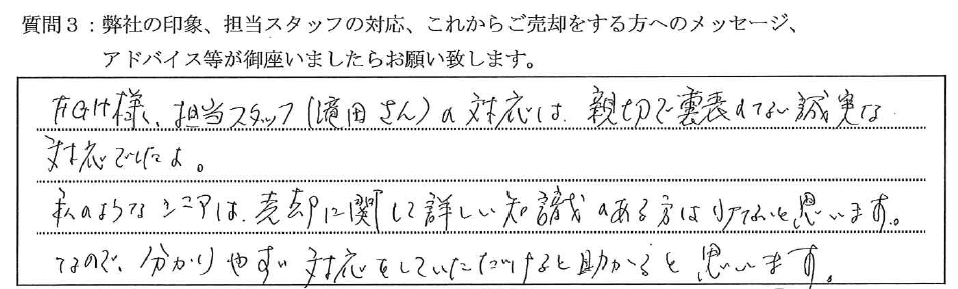 質問３：弊社の印象、担当スタッフの対応、これからご売却をする方へのメッセージ、
アドバイス等が御座いましたらお願い致します。
様、担当スタッフ(境田さん)の対応は、親切で裏表のない誠実な
対応でしたよ。
私のようなシニアは、売却に関して詳しい知識のある方は少ないと思います。
なので、分かりやすい対応をしていただけると助かると思います。